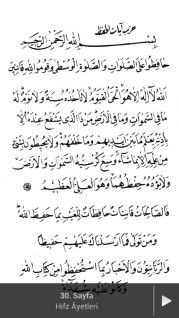 حزب آيات الحفظ
بسم الله الرحمن الرحيم
حافظوا على الصلوات والصلوة الوسطى وقوموا لله قانتين
الله لا اله الا هو الحي القيوم لا تأخذه سنة ولا نوم له
ما في السموات وما في الارض من ذا الذي يشفع عنده الا
باذنه يعلم ما بين ايديهم وما خلفهم ولا يحيطون بشئ
من علمه الا بما شاء وسع كرسيه السموات والارض
ولا يؤده حفظهما وهو العلي العظيم
فالصالحات قانتات حافظات للغيب بما حفظ الله
ومن تولى فما ارسلناك عليهم حفيظا
والربانيون والاحبار بما استحفظوا من كتاب الله
وكانوا عليه شهداء
30. Sayfa
Hıfz Âyetleri